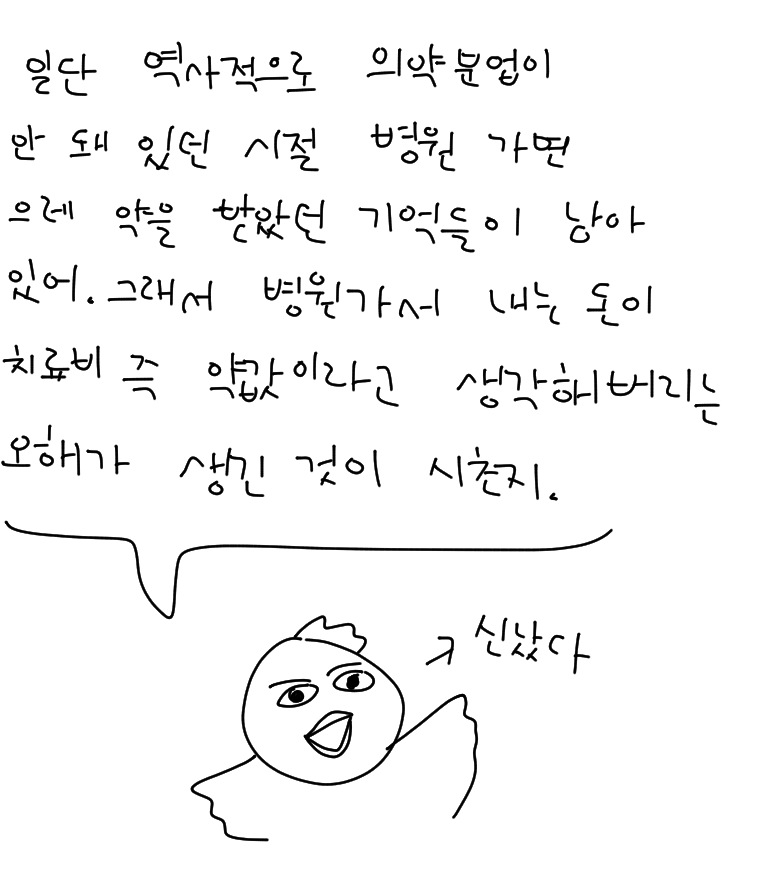 일단 역사적으로 의약분업이
안 돼 있던 시절 병원 가면
으레 약을 받았던 기억들이 남아
있어. 그래서 병원가서 내는 돈이
치료비 즉 약값이라고 생각해버리는
오해가 생긴 것이 시초지.
신났다